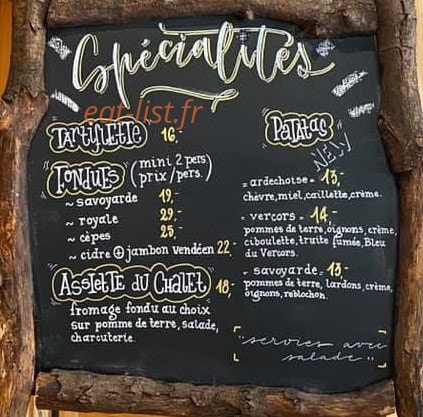 Spécialités
eat-list.fr
Tartiflette 16,-
Fondues (mini 2 pers
prix/pers.)
~ savoyarde 19,-
~ royale 29,-
~ cèpes 25,-
~ cidre + jambon vendéen 22,-
Assiette du Chalet 18,-
fromage fondu au choix
sur pomme de terre, salade,
charcuterie.
Patatas
NEW
= ardechoise = 13,-
chèvre, miel, caillette, crème.
- vercors = 14,-
pommes de terre, oignons, crème,
ciboulette, truite fumée, Bleu
du Vercors.
- savoyarde = 13,-
pommes de terre, lardons, crème,
oignons, reblochon.
"servies avec
salade"